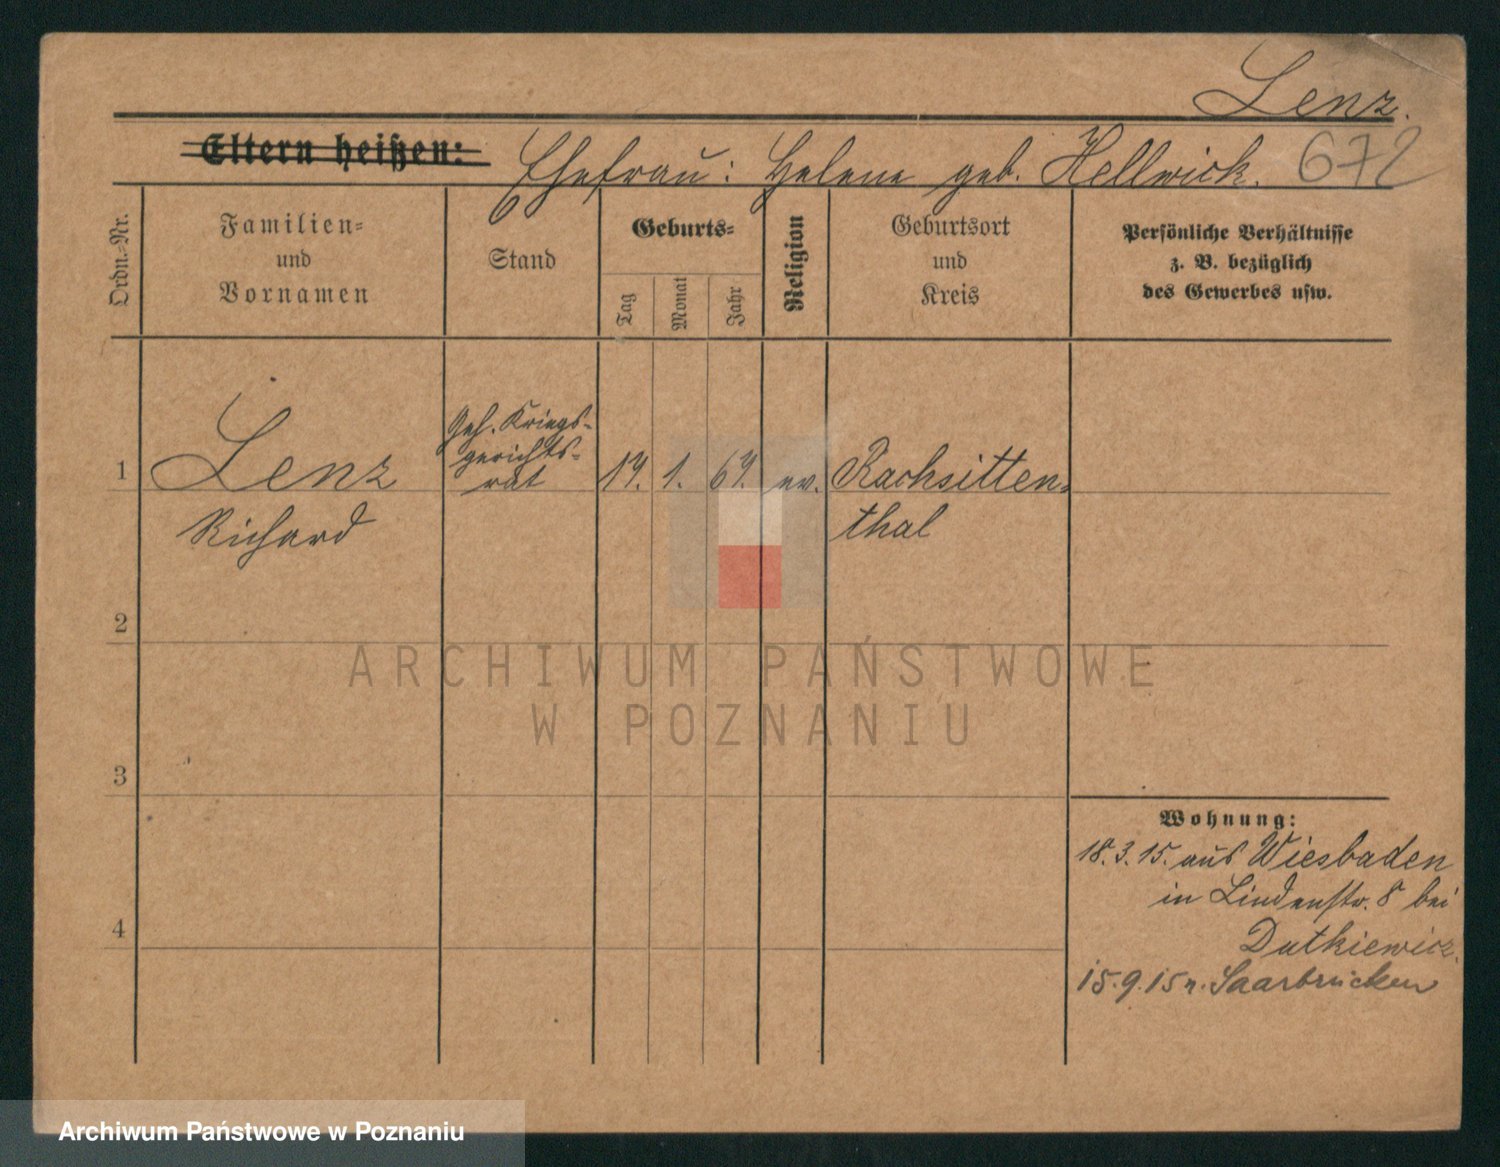 Lenz.
Eltern heißen: Ehefrau: Helene geb. Hellwick. 672
Ordn.-Nr.
Familien-
und
Vornamen
Stand
Geburts-
Tag
Monat
Jahr
Religion
Geburtsort
und
Kreis
Persönliche Verhältnisse
z. B. bezüglich
des Gewerbes usw.
1 Lenz
Richard
Geh. Kriegs-
gerichts-
rat
1. ev. Rachsitten-
thal
2
3
4
ARCHIWUM PAŃSTWOWE
W POZNANIU
Wohnung:
18.3.15. aus Wiesbaden
in Lindenstr. 8 bei
Dutkiewicz.
15.9.15 n. Saarbrücken
Archiwum Państwowe w Poznaniu